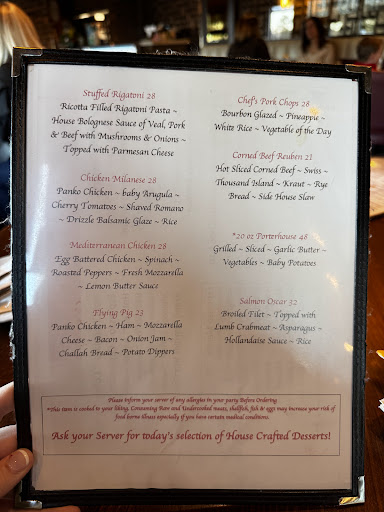 Stuffed Rigatoni 28
Ricotta Filled Rigatoni Pasta ~
House Bolognese Sauce of Veal, Pork
& Beef with Mushrooms & Onions ~
Topped with Parmesan Cheese
Chicken Milanese 28
Panko Chicken ~ baby Arugula ~
Cherry Tomatoes ~ Shaved Romano
~ Drizzle Balsamic Glaze ~ Rice
Mediterranean Chicken 28
Egg Battered Chicken ~ Spinach ~
Roasted Peppers ~ Fresh Mozzarella
~ Lemon Butter Sauce
Flying Pig 23
Panko Chicken ~ Ham ~ Mozzarella
Cheese ~ Bacon ~ Onion Jam ~
Challah Bread ~ Potato Dippers
Chef's Pork Chops 28
Bourbon Glazed ~ Pineapple ~
White Rice ~ Vegetable of the Day
Corned Beef Reuben 21
Hot Sliced Corned Beef ~ Swiss ~
Thousand Island ~ Kraut ~ Rye
Bread ~ Side House Slaw
*20 oz Porterhouse 48
Grilled ~ Sliced ~ Garlic Butter ~
Vegetables ~ Baby Potatoes
Salmon Oscar 32
Broiled Filet ~ Topped with
Lumb Crabmeat ~ Asparagus ~
Hollandaise Sauce ~ Rice
Please inform your server of any allergies in your party Before Ordering
*This item is cooked to your liking. Consuming Raw and Undercooked meats, shellfish, fish & eggs may increase your risk of
food borne illness especially if you have certain medical conditions.
Ask your Server for today's selection of House Crafted Desserts!